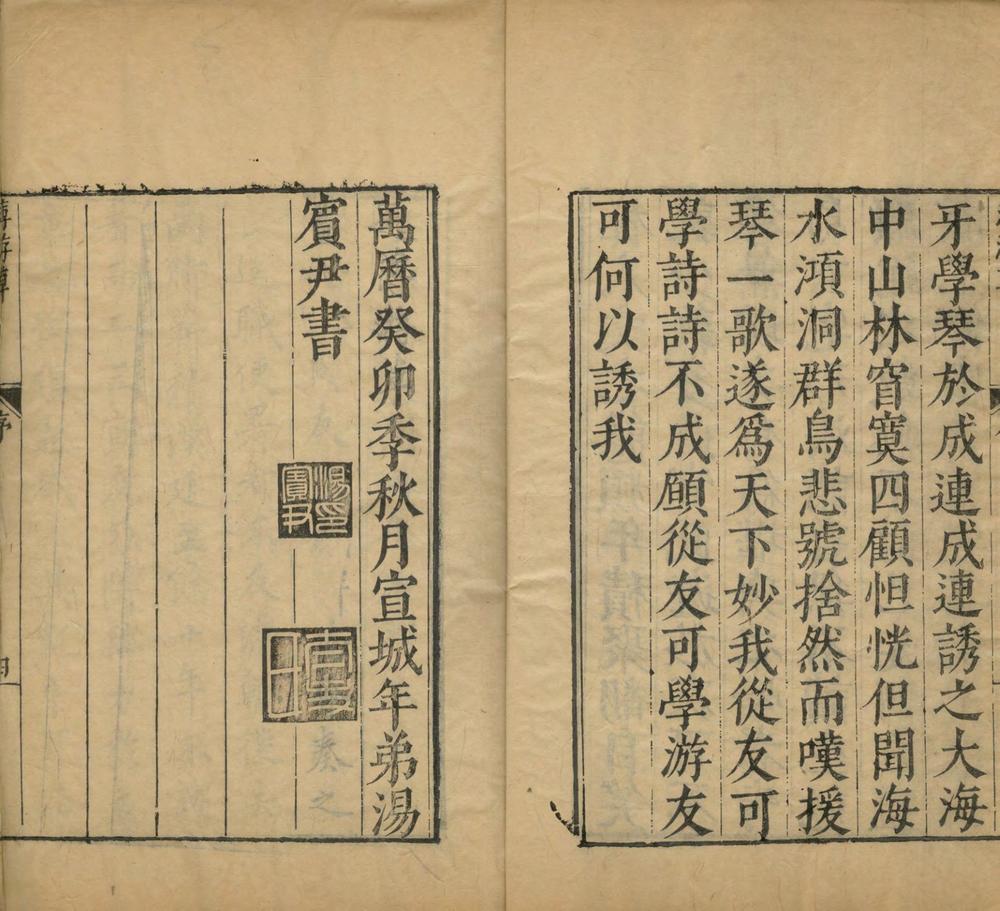 牙學琴於成連成連誘之大海
中山林窅寞四顧怛恍但聞海
水澒洞群鳥悲號捨然而嘆援
琴一歌遂爲天下妙我從友可
學詩詩不成願從友可學游友
可何以誘我
萬曆癸卯季秋月宣城年弟湯
賓尹書
湯賓尹印
序